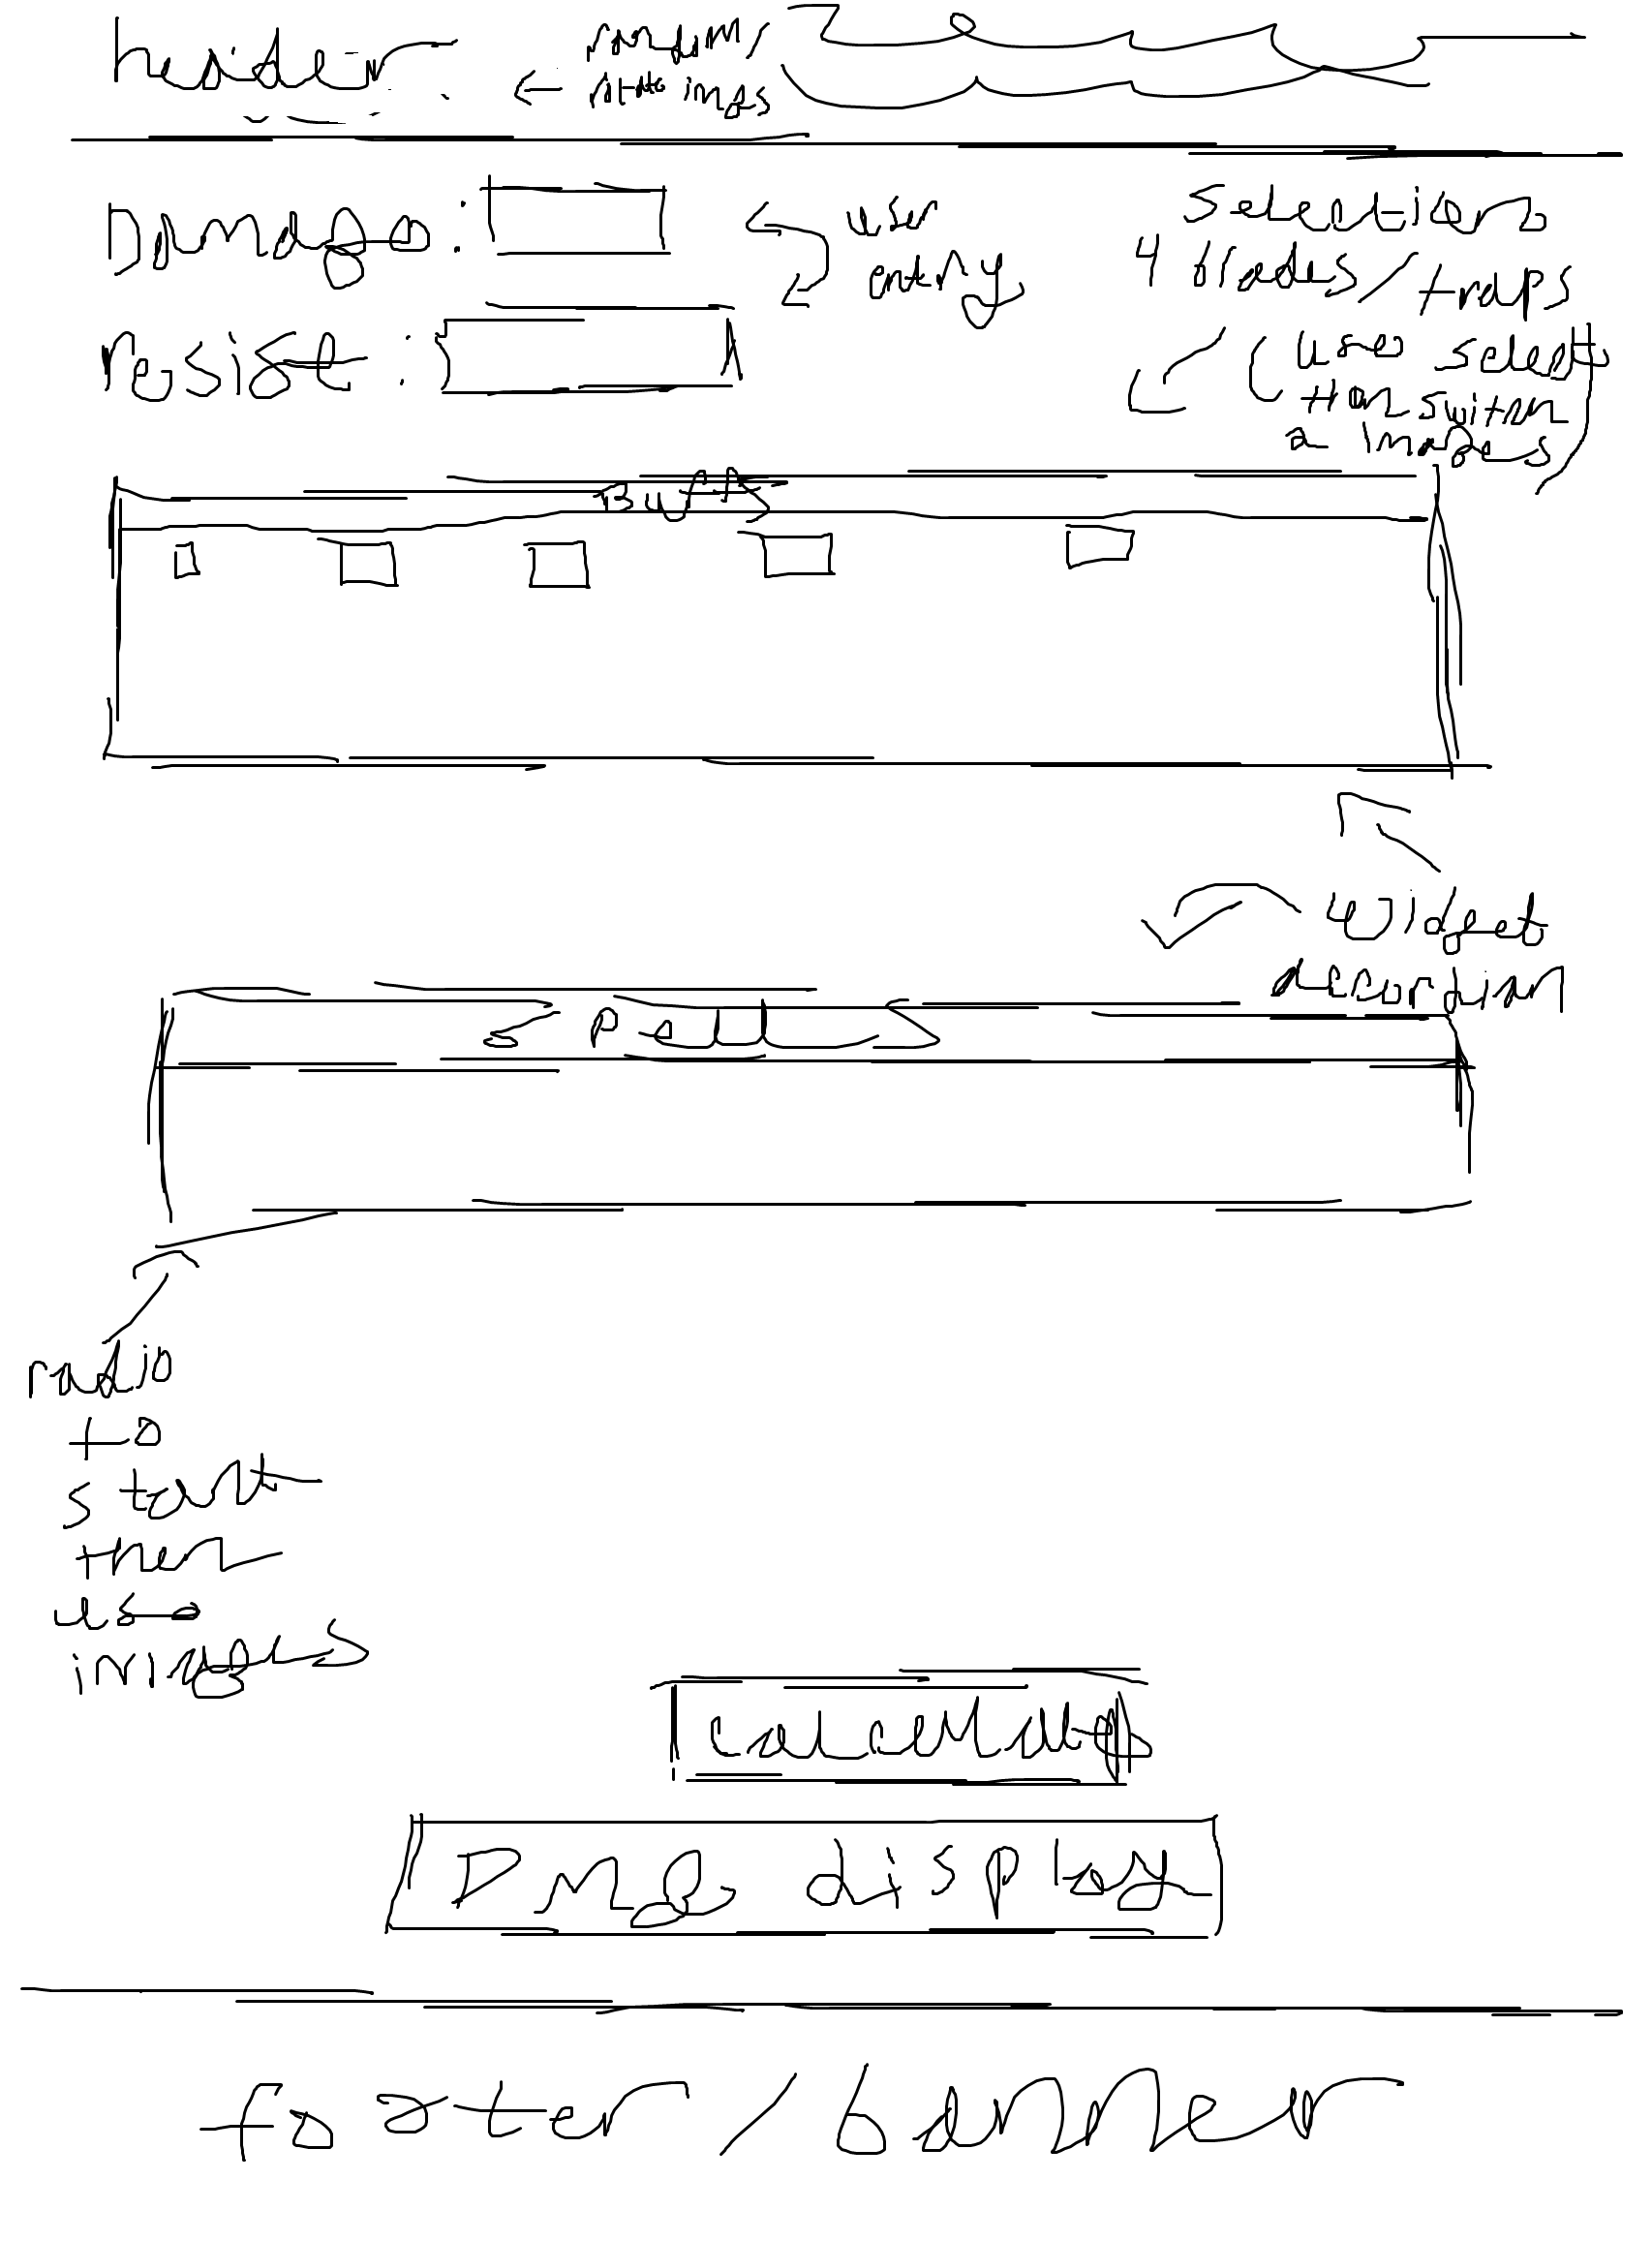 header
random/
rotate imgs
Damage:
user
entry
resist:
selection
4 blades/traps
(use select
then switch
2 images)
Buffs
widget
accordian
Spells
radio
to
start
then
use
images
calculate
DMG display
footer/banner